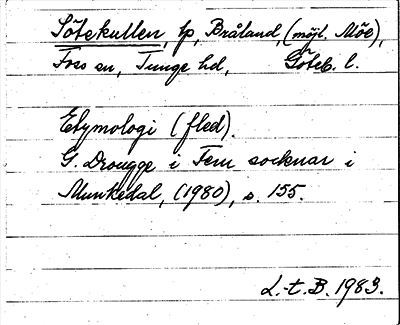 Sötekullen, tp, Bråland, (möjl. Möe),
Foss sn, Tunge hd, Göteb. l.
Etymologi (fled).
G. Drougge i Fem socknar i
Munkedal, (1980), s. 155.
L.-t. B. 1983.